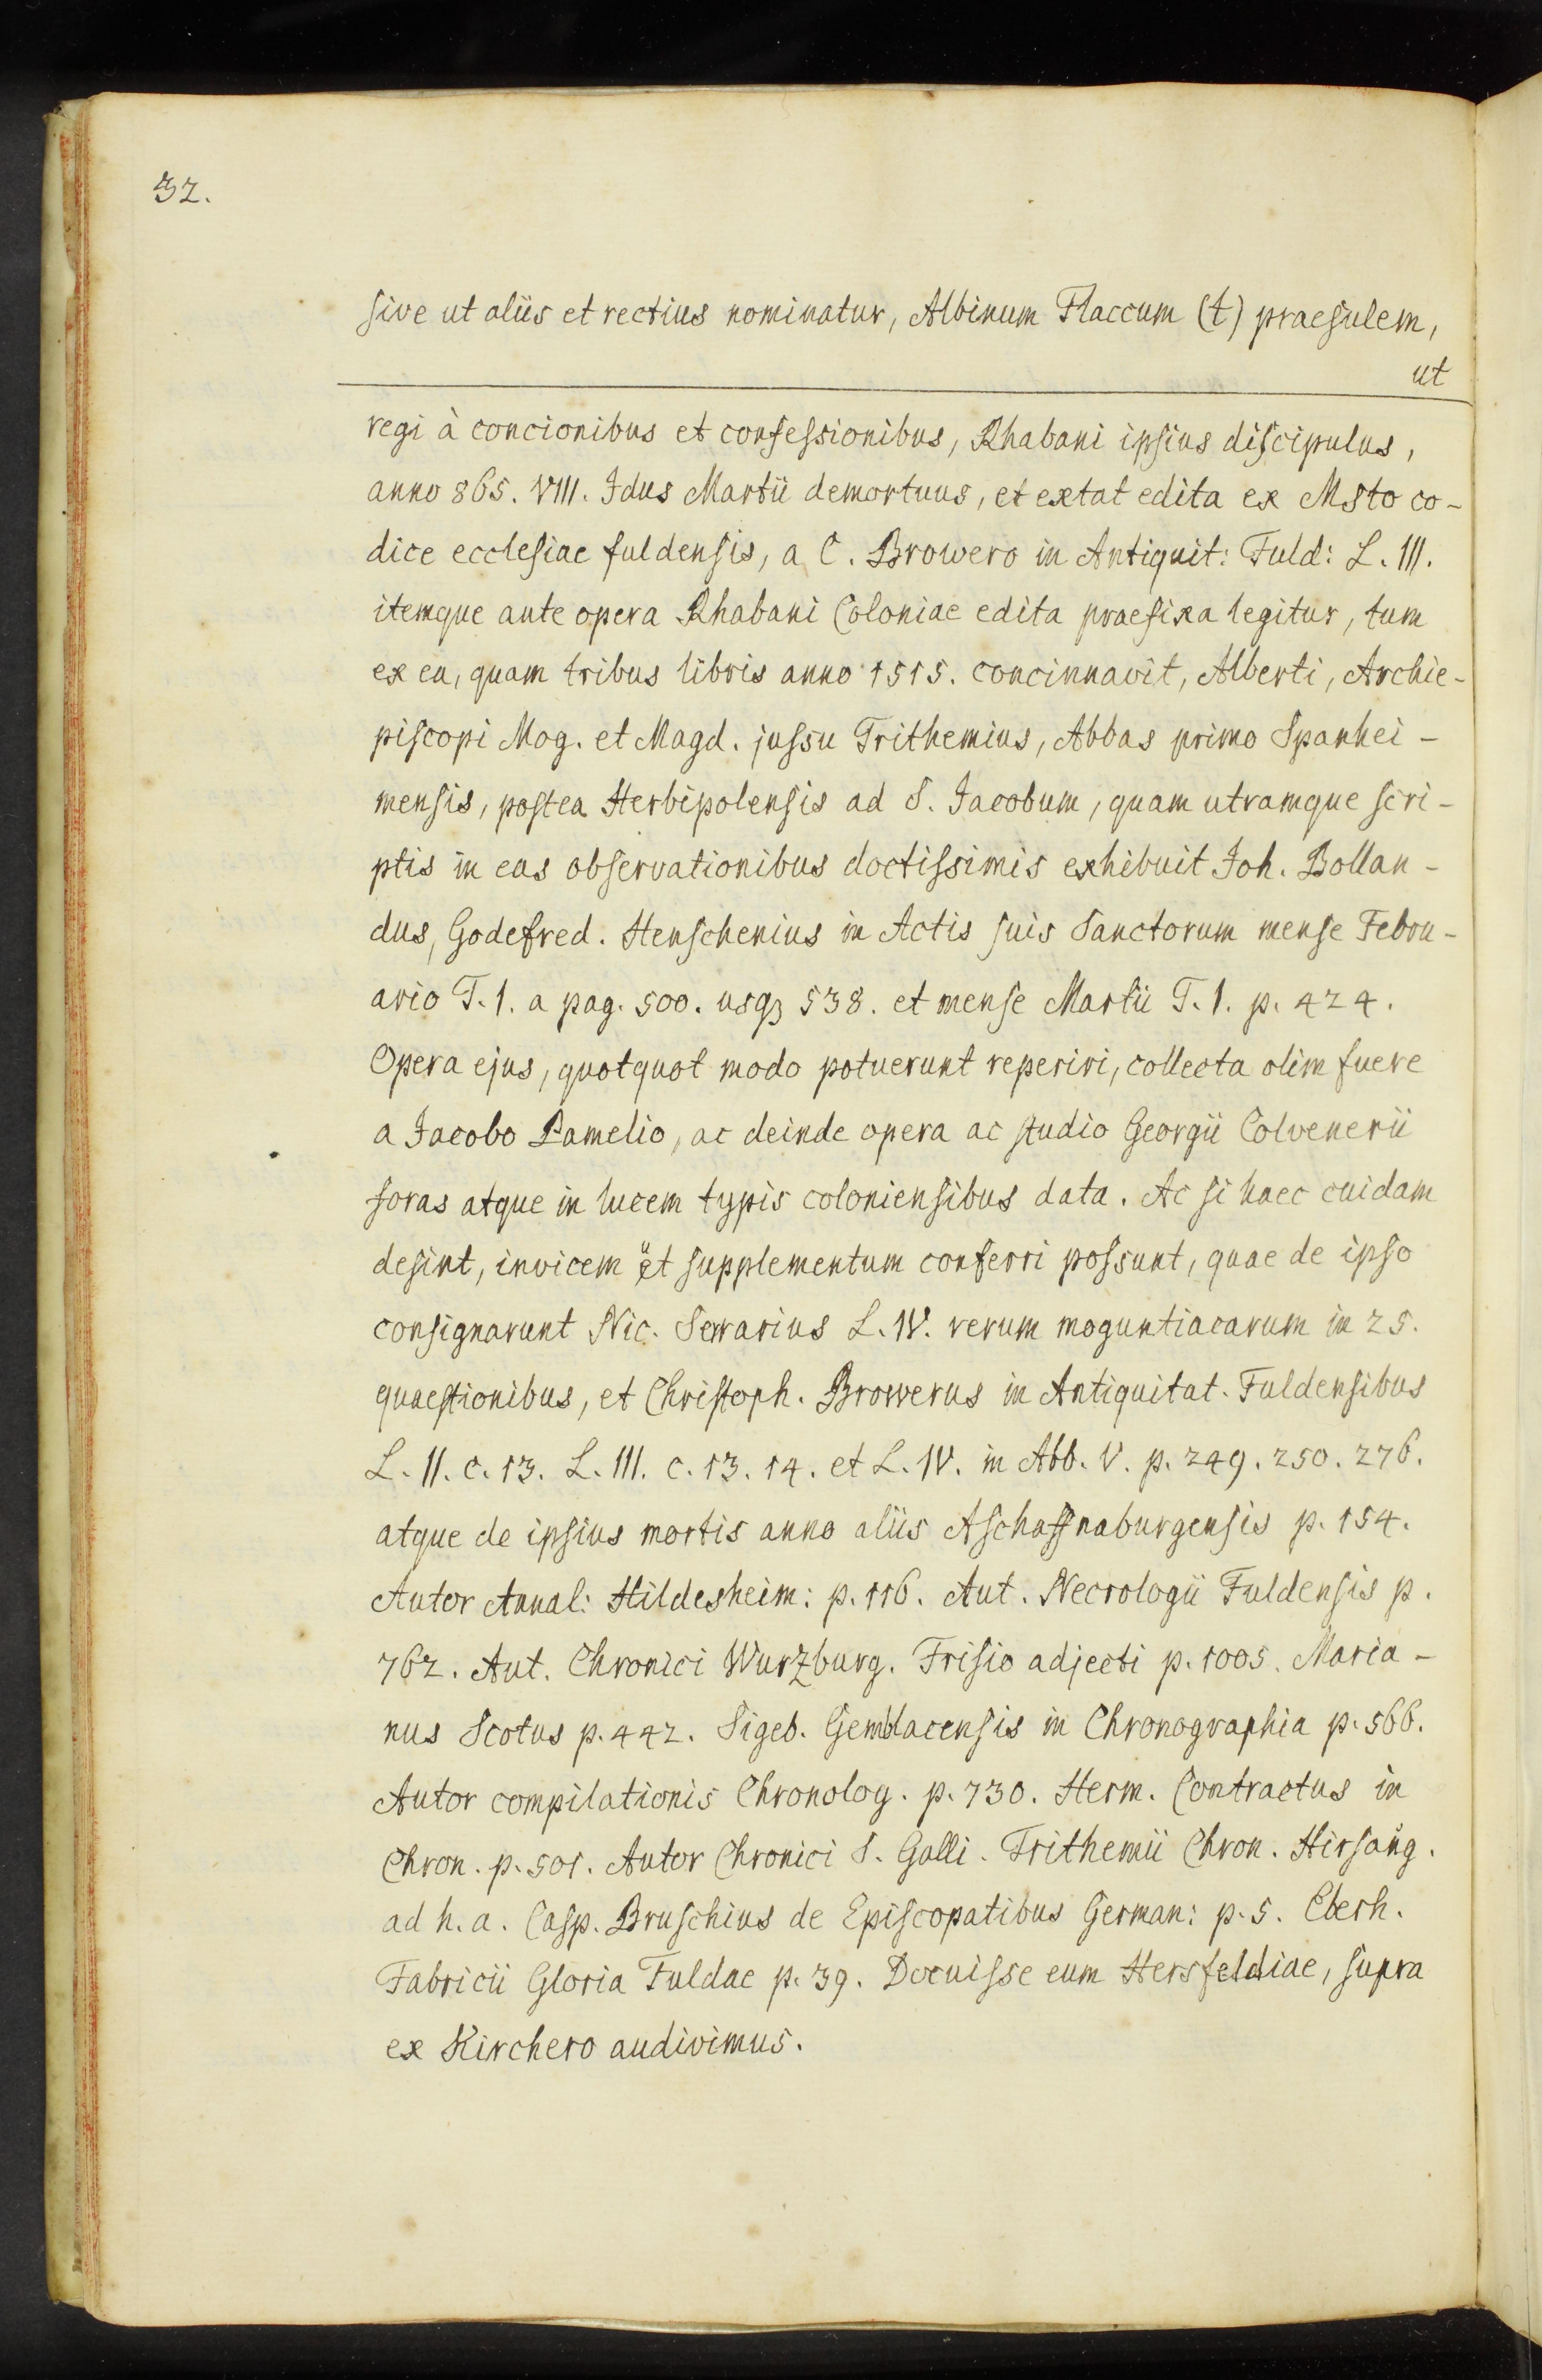 32.
sive ut aliis et rectius nominatur, Albinum Flaccum (t) praesulem,
ut
regi à concionibus et confessionibus, Rhabani ipsius discipulus,
anno 865. VIII. Idus Martii demortuus, et extat edita ex Msto co-
dice ecclesiae fuldensis, a C. Browero in Antiquit: Fuld: L. III.
itemque ante opera Rhabani Coloniae edita praefixa legitur, tum
ex ea, quam tribus libris anno 1515. concinnavit, Alberti, Archie-
piscopi Mog. et Magd. jussu Trithemius, Abbas primo Spanhei-
mensis, postea Herbipolensis ad S. Jacobum, quam utramque scri-
ptis in eas observationibus doctissimis exhibuit Joh. Bollan-
dus, Godefred. Henschenius in Actis suis Sanctorum mense Febru-
ario T. 1. a pag. 500. usq3 538. et mense Martii T. 1. p. 424.
Opera ejus, quotquot modo potuerunt reperiri, collecta olim fuere
a Jacobo Pamelio, ac deinde opera ac studio Georgii Colvenerii
foras atque in lucem typis coloniensibus data. Ac si haec cuidam
desint, invicem et supplementum conferri possunt, quae de ipso
consignarunt Nic. Serrarius L. IV. rerum moguntiacarum in 25.
quaestionibus, et Christoph. Browerus in Antiquitat. Fuldensibus
L. II. c. 13. L. III. c. 13. 14. et L. IV. in Abb. V. p. 249. 250. 276.
atque de ipsius mortis anno aliis Aschaffnaburgensis p. 154.
Autor Annal: Hildesheim: p. 116. Aut. Necrologii Fuldensis p.
762. Aut. Chronici Wurzburg. Frisio adjecti p. 1005. Maria-
nus Scotus p. 442. Sigeb. Gemblacensis in Chronographia p. 566.
Autor compilationis Chronolog. p. 730. Herm. Contractus in
Chron. p. 501. Autor Chronici S. Galli. Trithemii Chron. Hirsaug.
ad h. a. Casp. Bruschius de Episcopatibus German: p. 5. Eberh.
Fabricii Gloria Fuldae p. 39. Docuisse eum Hersfeldiae, supra
ex Kirchero audivimus.